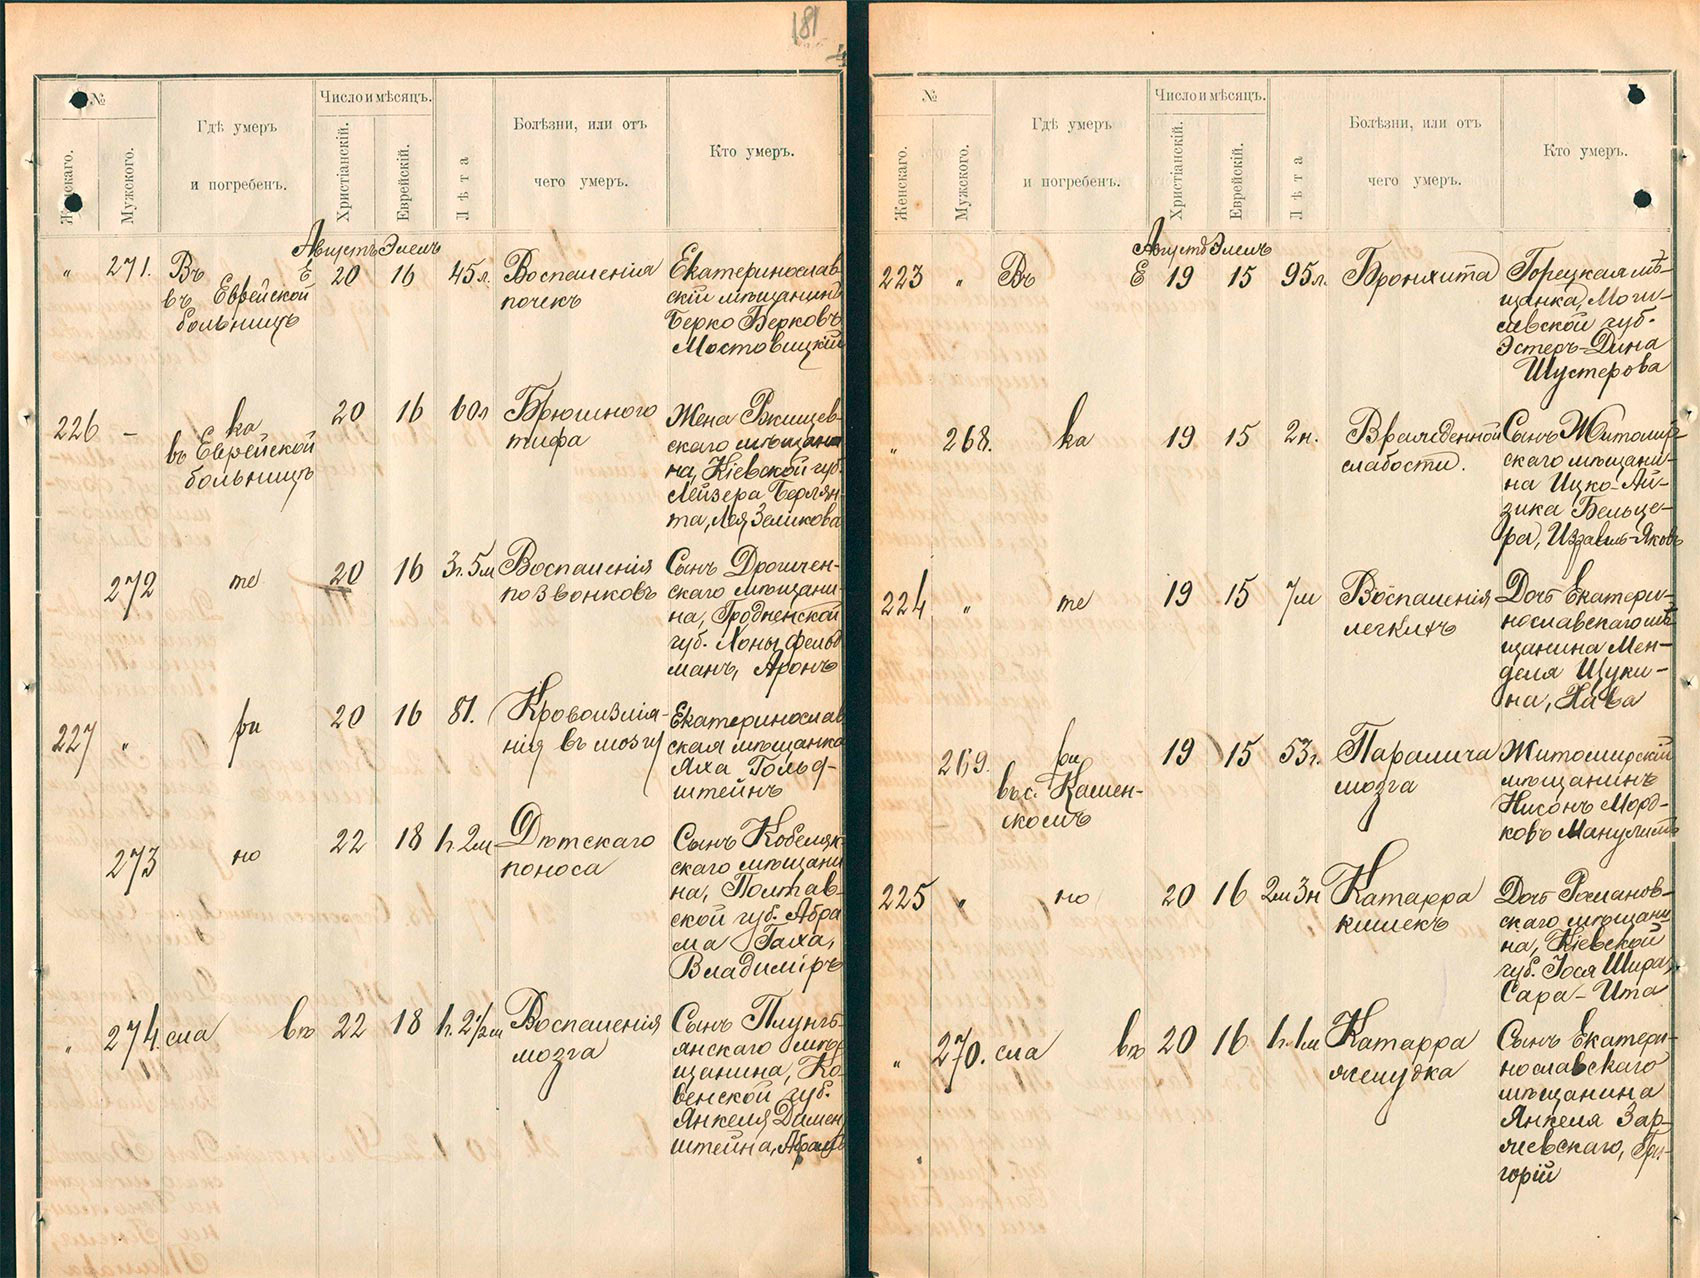 181
№
Женскаго.
Мужского.
Гдѣ умеръ
и погребенъ.
Число и мѣсяцъ.
Христіанскій.
Еврейскій.
Лѣта
Болѣзни, или отъ
чего умеръ.
Кто умеръ.
Августъ Элелъ
" 271. Въ Е 20 16 45 л. Воспаленія
въ Еврейской
больницѣ
почекъ
Екатеринослав-
скій мѣщанинъ
Берко Берковъ
Мостовицкій
226 — ка 20 16 60 л Брюшного
въ Еврейской
больницѣ
тифа
Жена Ржищев-
скаго мѣщани
на, Кіевской губ.
Лейзера Берлян-
та, Лея Зеликова
272 те 20 16 3г. 5м Воспаленія
позвонковъ
Сынъ Дрогичен-
скаго мѣщани-
на, Гродненской
губ. Хоны Фельд
манъ, Аронъ
227 " ри 20 16 81. Кровоизлія-
нія въ мозгу
Екатеринослав
ская мѣщанка
Яха Гольд-
штейнъ
273 но 22 18 1г. 2м Дѣтскаго
поноса
Сынъ Кобеляк-
скаго мѣщани
на, Полтав-
ской губ. Абра
ма Гаха,
Владиміръ
" 274. сла въ 22 18 1г. 2½м Воспаленія
мозга
Сынъ Плунгь-
янскаго мѣ-
щанина, Ко-
венской губ.
Янкеля Даmен
штейна, Абрамъ
№
Женскаго.
Мужского.
Гдѣ умеръ
и погребенъ.
Число и мѣсяцъ.
Христіанскій.
Еврейскій.
Лѣта
Болѣзни, или отъ
чего умеръ.
Кто умеръ.
Августъ Элелъ
223 " Въ Е 19 15 95 л. Бронхита
Горецкая мѣ-
щанка, Моги-
левской губ.
Эстеръ-Дина
Шустерова
" 268. ка 19 15 2н. Врожденной
слабости.
Сынъ Житомир-
скаго мѣщани-
на Ицко-Ай-
зика Бельце-
ра, Израиль-Яковъ
224 " те 19 15 7м Воспаленія
легкихъ
Дочь Екатери-
нославскаго мѣ
щанина Мен-
деля Щуки-
на, Хава
269. ри 19 15 53г. Паралича
въ с. Камен-
скомъ
мозга
Житомирскій
мѣщанинъ
Нисонъ Морд-
ковъ Манулисъ
225 " но 20 16 2м 3н Катарра
кишекъ
Дочь Романов-
скаго мѣщани
на, Кіевской
губ. Іося Шира,
Сара-Ита
" 270. сла въ 20 16 1г. 1м Катарра
желудка
Сынъ Екатери-
нославскаго
мѣщанина
Янкеля Зар-
жевскаго, Гри-
горій